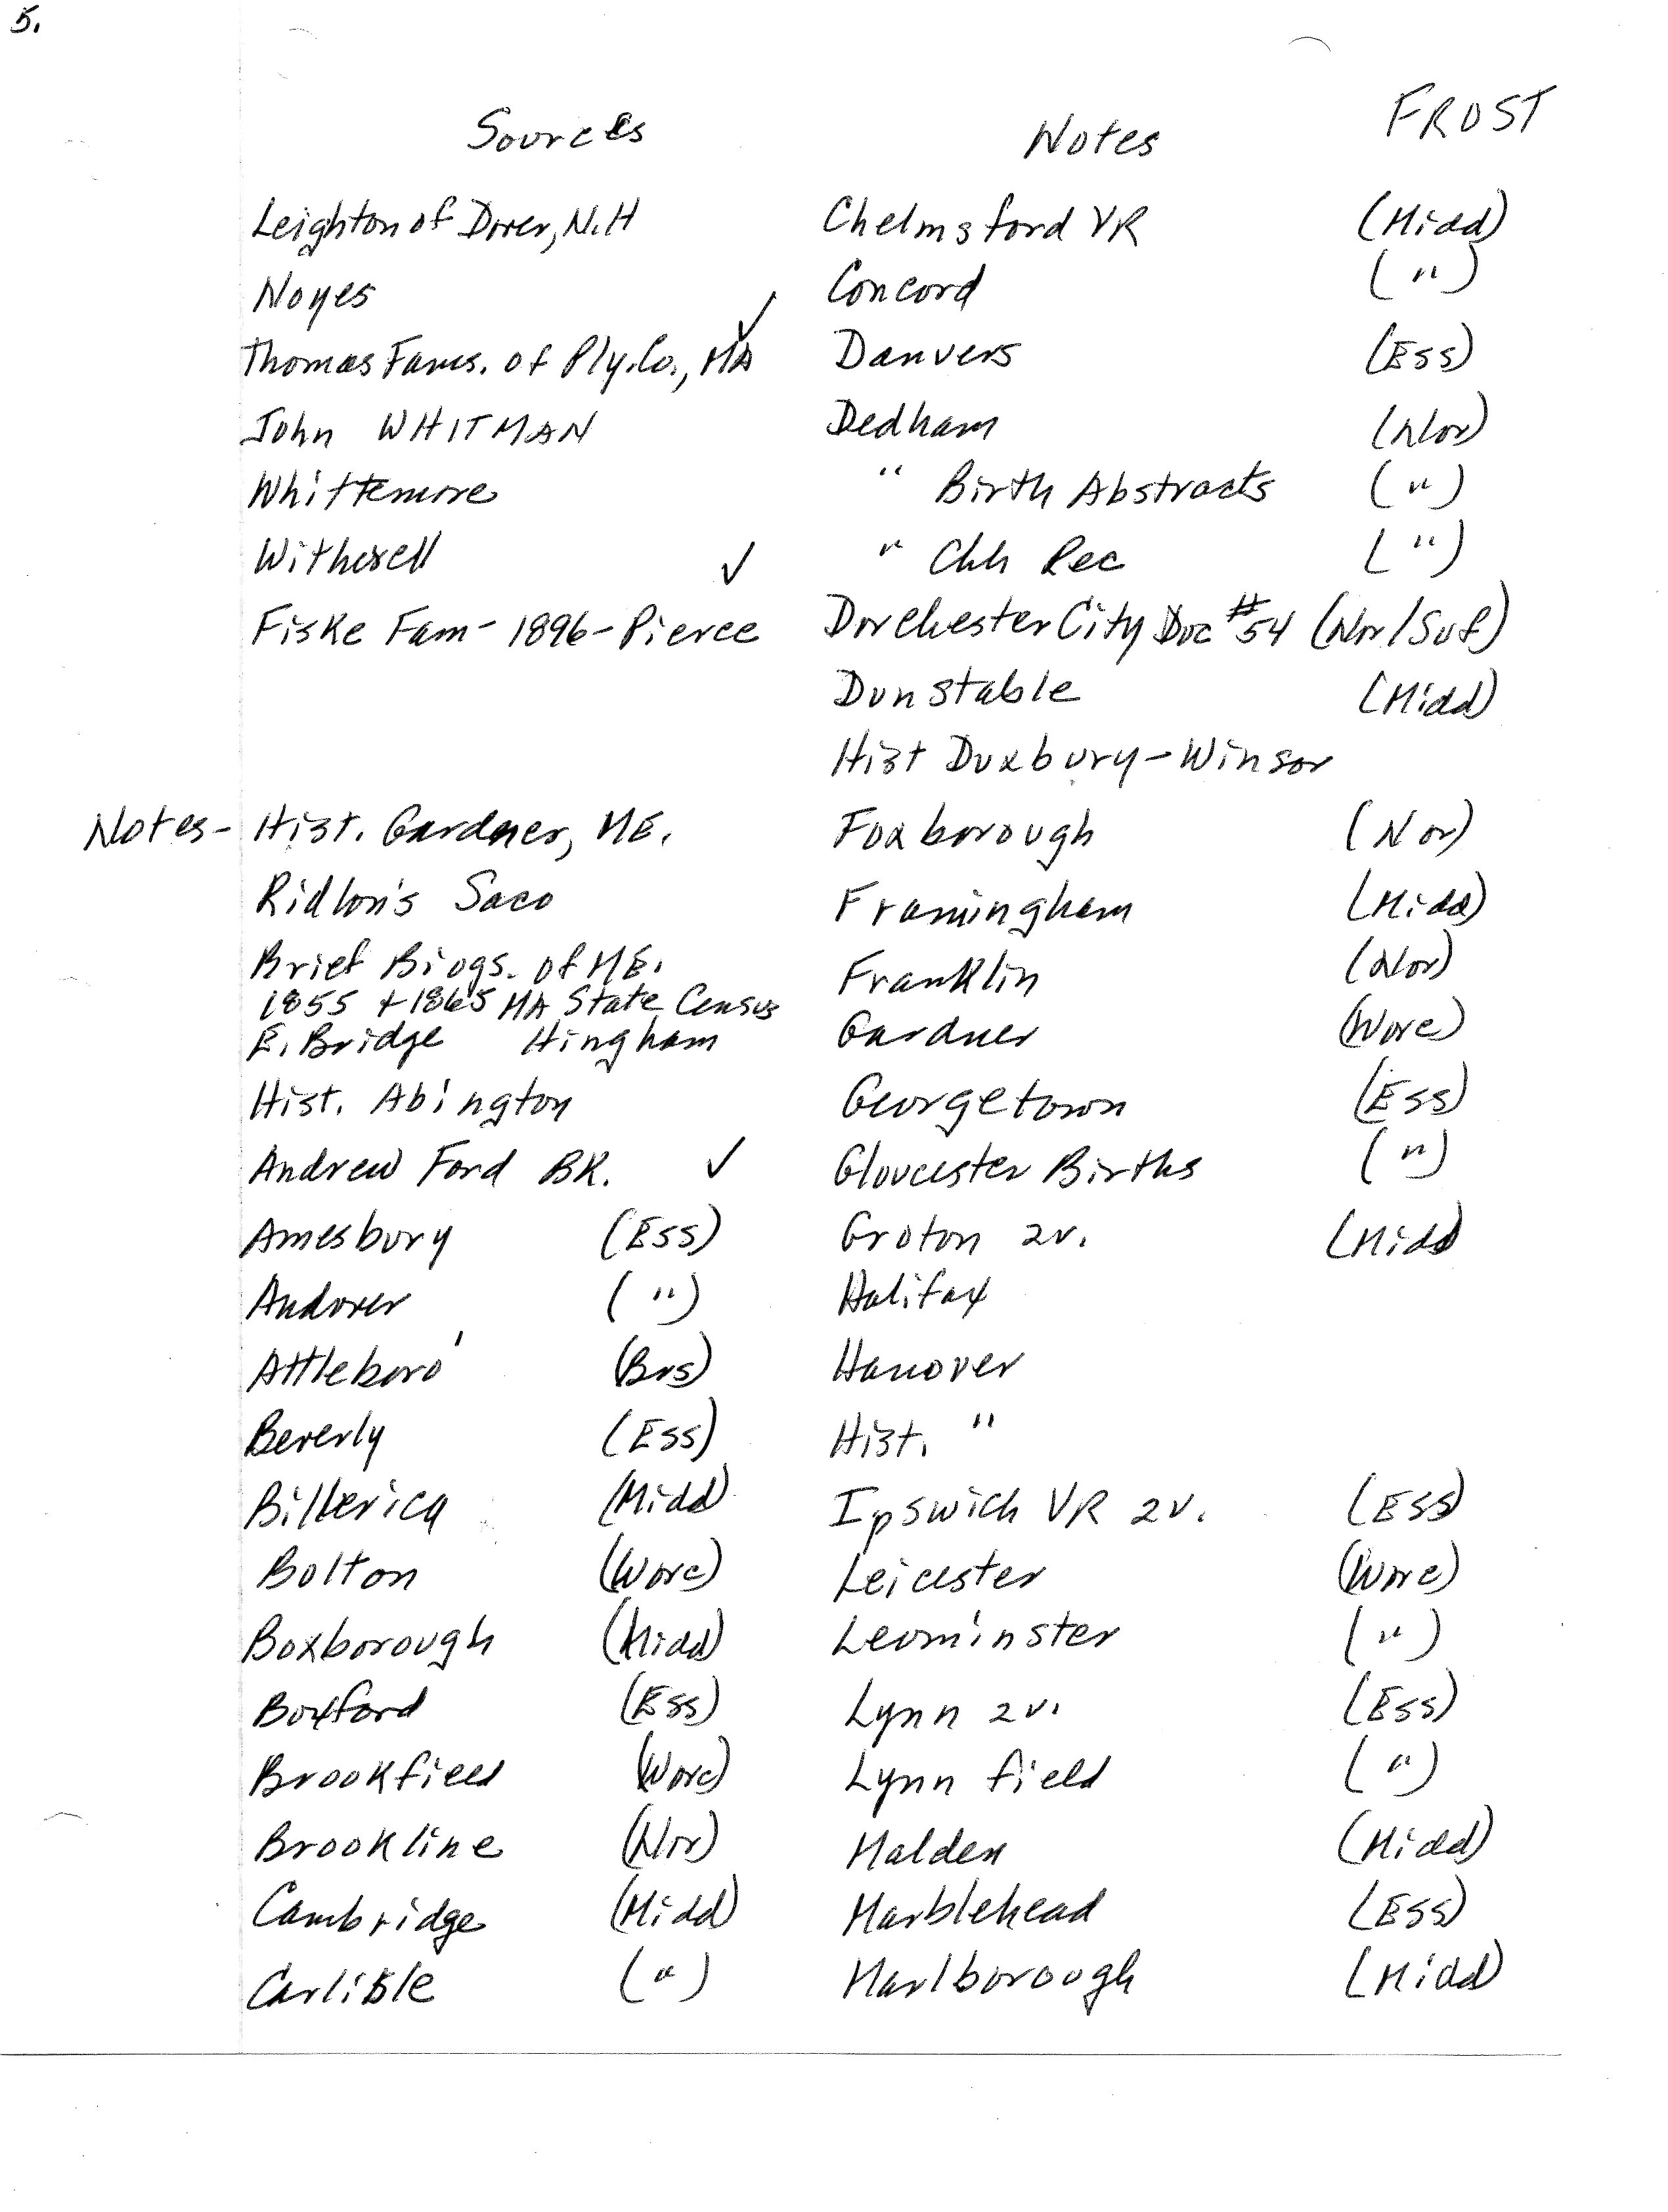 5.
FROST
Sources
Notes
Leighton of Dover, N.H
Noyes
Thomas Fams. of Ply. Co., MA ✓
John WHITMAN
Whittemore
Witherell ✓
Fiske Fam - 1896 - Pierce
Notes - Hist. Gardner, ME.
Ridlon's Saco
Brief Biogs. of ME.
1855 + 1865 MA State Census
E. Bridge Hingham
Hist. Abington
Andrew Ford BK. ✓
Amesbury (Ess)
Andover (")
Attleboro' (Brs)
Beverly (Ess)
Billerica (Midd)
Bolton (Worc)
Boxborough (Midd)
Boxford (Ess)
Brookfield (Worc)
Brookline (Nor)
Cambridge (Midd)
Carlisle (")
Chelmsford VR (Midd)
Concord (")
Danvers (Ess)
Dedham (Nor)
" Birth Abstracts (")
" Chh Rec (")
Dorchester City Doc #54 (Nor/Suf)
Dunstable (Midd)
Hist Duxbury - Winsor
Foxborough (Nor)
Framingham (Midd)
Franklin (Nor)
Gardner (Worc)
Georgetown (Ess)
Gloucester Births (")
Groton 2v. (Midd
Halifax
Hanover
Hist. "
Ipswich VR 2v. (Ess)
Leicester (Worc)
Leominster (")
Lynn 2v. (Ess)
Lynnfield (")
Malden (Midd)
Marblehead (Ess)
Marlborough (Midd)